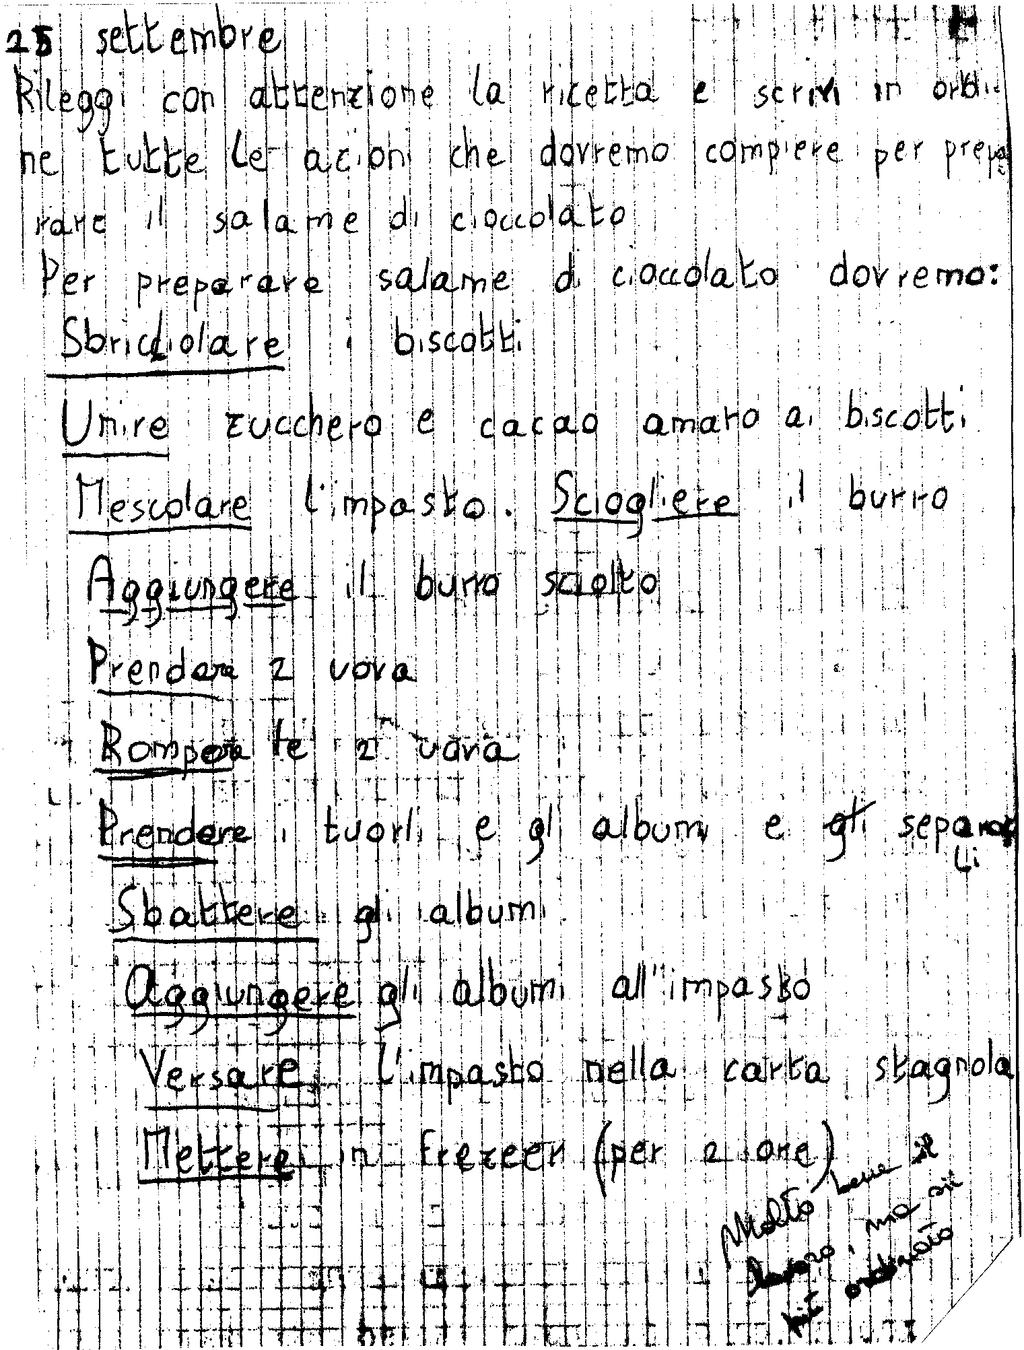 25 settembre
Rileggi con attenzione la ricetta e scrivi in ordi-
ne tutte le acioni che dovremo compiere per prepa
rare il salame di cioccolato
Per preparare salame di cioccolato dovremo:
Sbriciolare i biscotti
Unire zucchero e cacao amaro ai biscotti
Mescolare l'impasto. Sciogliere il burro
Aggiungere il burro sciolto
Prendere 2 uova
Rompere le 2 uova
Prendere i tuorli e gli albumi e gli separar
li
Sbattere gli albumi
Aggiungere gli albumi all'impasto
Versare l'impasto nella carta stagnola
Mettere in frezeer (per 2 ore)
Molto bene il
lavoro, ma sii
più ordinato